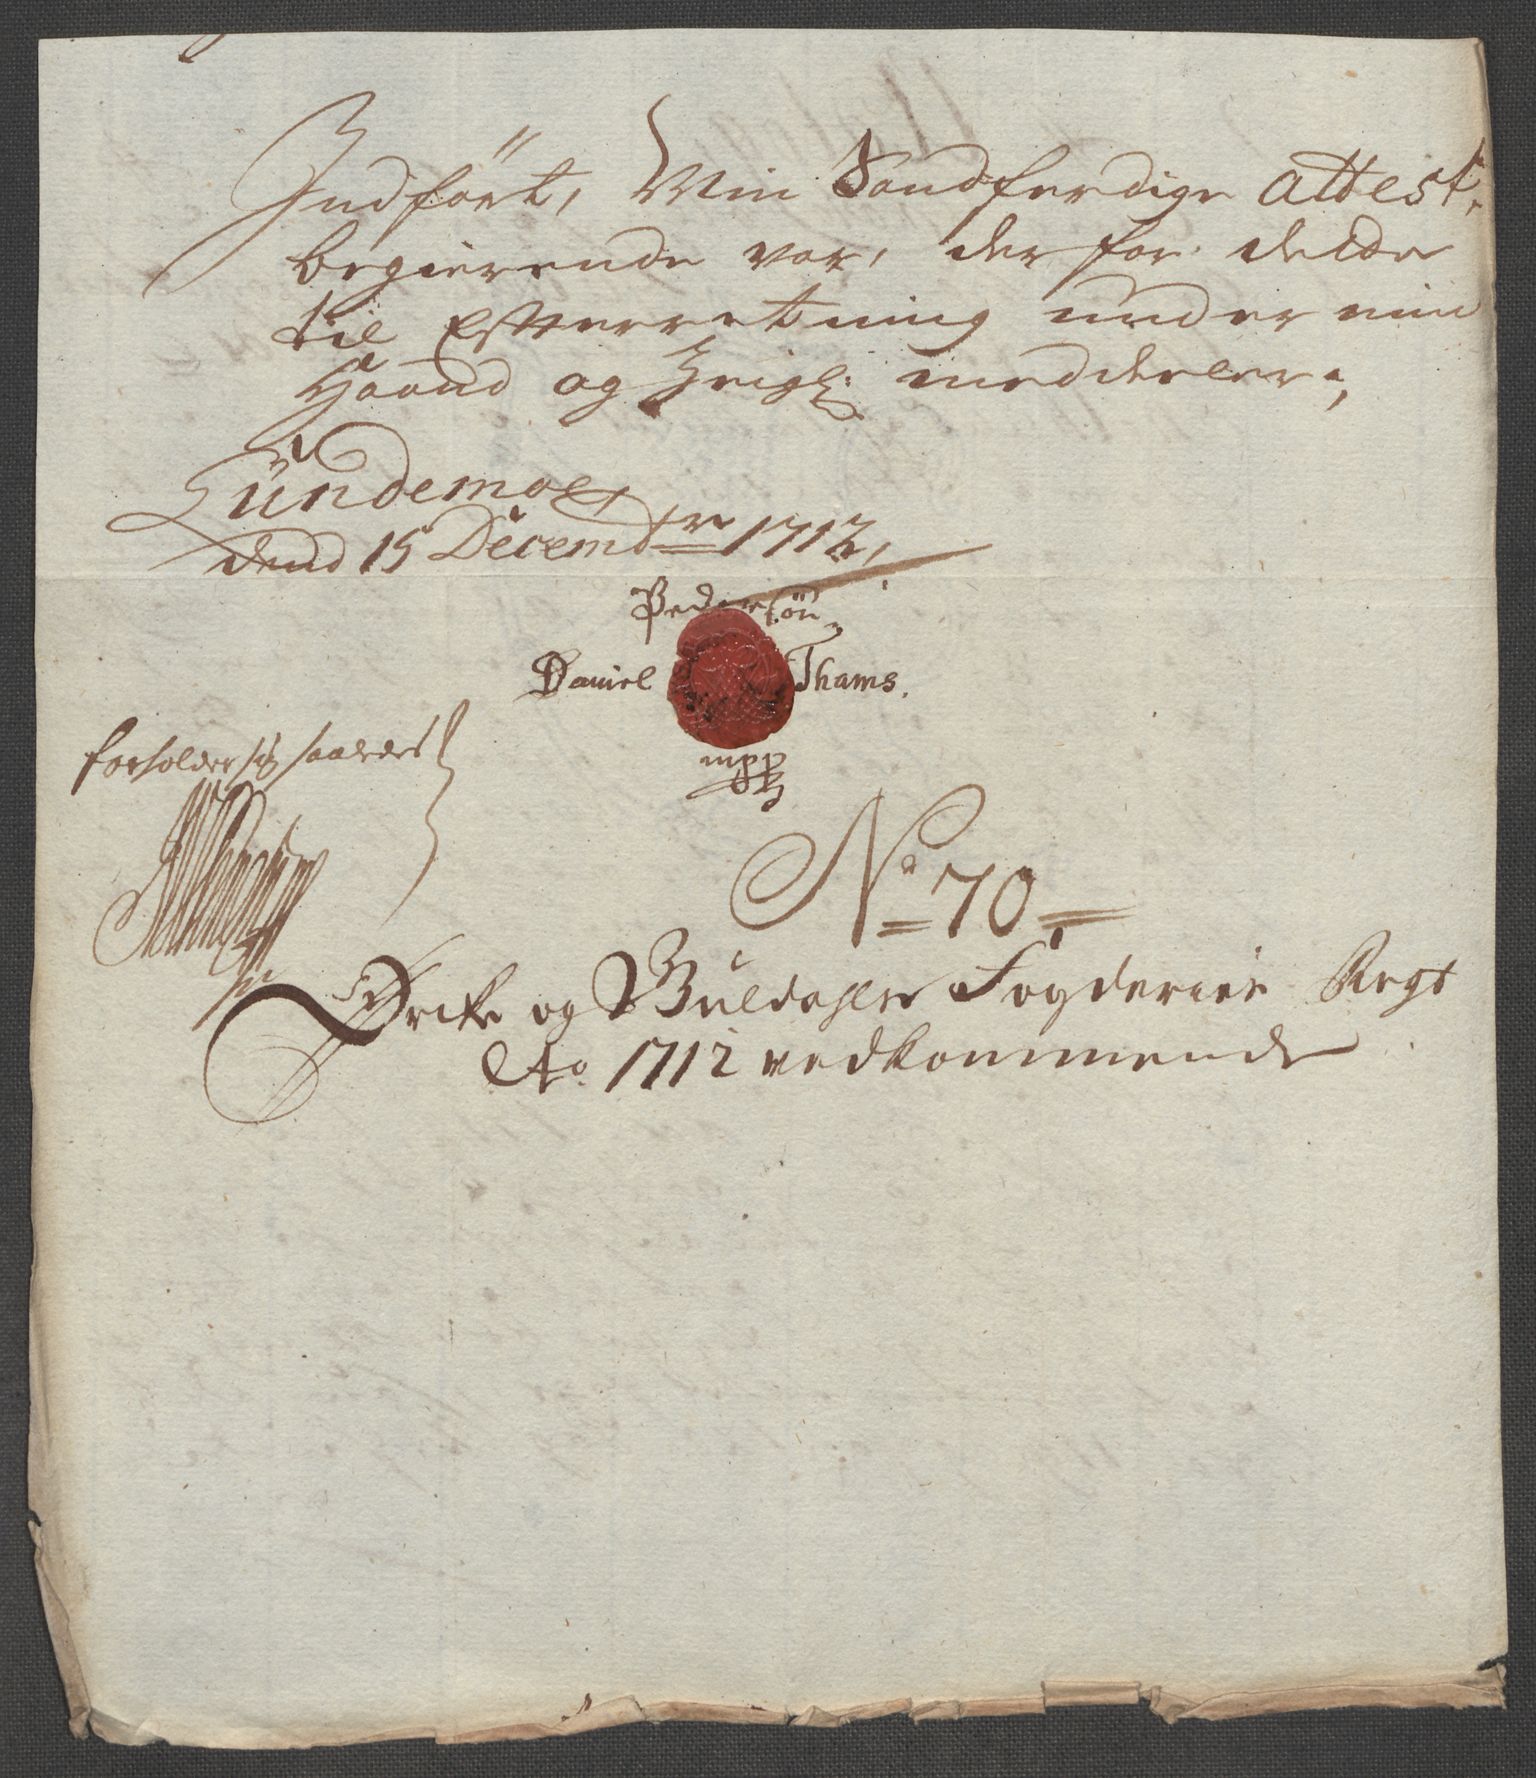 Indført, Min Sandferdige Attest,
begierende var, der for dette
til Effterretning under min
Haand og Zeigl: meddeeler,
Lündemoe
dend 15 Decembre 1712,
Pedersøn
Daniel Thams.
mpp
forholder sig saaledes
No 70
Ørcke og Guldahls Fogderies Regt
Ao 1712 vedkommende